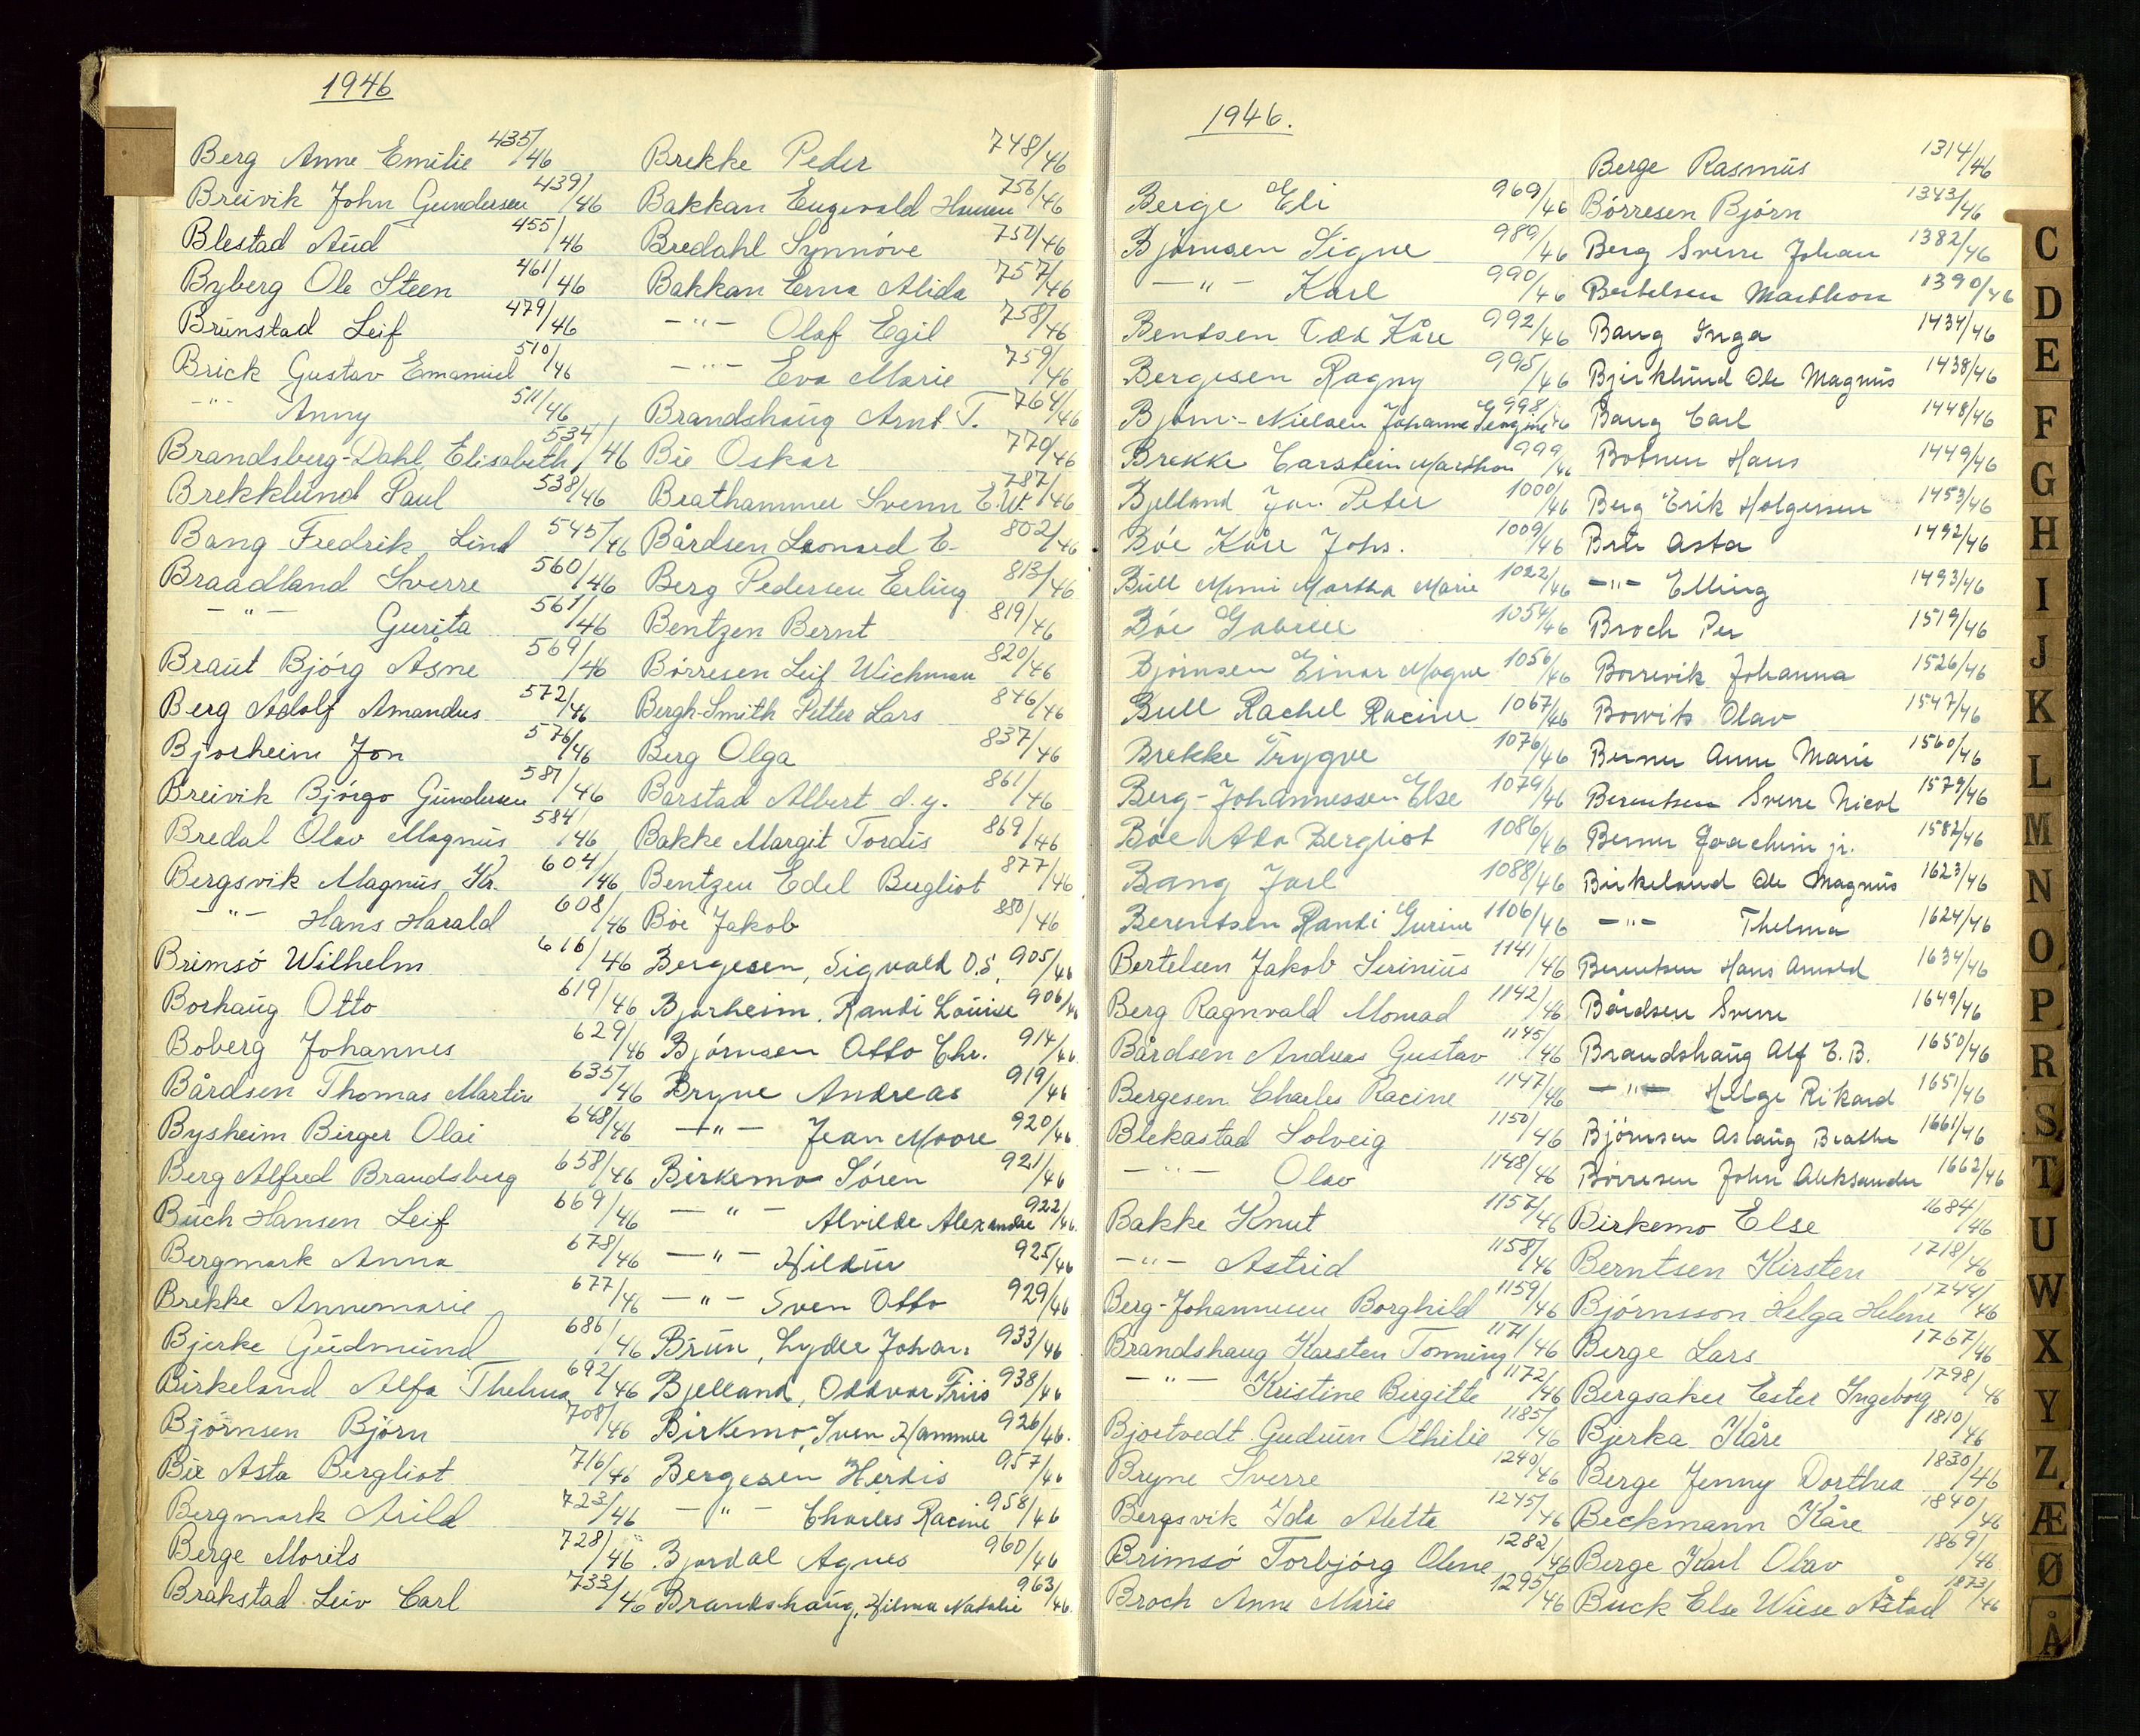 1946
Berg Anne Emilie 435/46
Breivik John Gundersen 439/46
Blestad Aud 455/46
Byberg Ole Steen 461/46
Brunstad Leif 479/46
Brick Gustav Emanuel 510/46
-"- Anny 511/46
Brandsberg-Dahl, Elisabeth 534/46
Brekklund Paul 538/46
Bang Fredrik Lind 545/46
Braadland Sverre 560/46
-"- Gurita 561/46
Braut Bjórg Åsne 569/46
Berg Adolf Amandus 572/46
Bjorheim Jon 576/46
Breivik Bjórgo Gundersen 581/46
Bredal Olav Magnus 584/46
Bergsvik Magnus Kr. 604/46
-"- Hans Harald 608/46
Brimsó Wilhelm 616/46
Borhaug Otto 619/46
Boberg Johannes 629/46
Bårdsen Thomas Martin 635/46
Bysheim Birger Olai 648/46
Berg Alfred Brandsberg 658/46
Buch Hansen Leif 669/46
Bergmark Anna 678/46
Brekke Annemarie 677/46
Bjerke Gudmund 686/46
Birkeland Alfa Thelma 692/46
Björnsen Björn 708/46
Bie Asta Bergliot 716/46
Bergmark Arild 723/46
Berge Morits 728/46
Brakstad Leiv Carl 733/46
Brekke Peder 748/46
Bakkan Engevald Hansen 756/46
Bredahl Synnóve 750/46
Bakkan Erna Alida 757/46
-"- Olaf Egil 758/46
-"- Eva Marie 759/46
Brandshaug Arnt T. 764/46
Bie Oskar 779/46
Brathammer Svenn E.W. 787/46
Bårdsen Leonard E. 802/46
Berg Pedersen Erling 813/46
Bentzen Bernt 819/46
Bórresen Leif Wichman 820/46
Bergh-Smith Petter Lars 846/46
Berg Olga 837/46
Barstad Albert d.y. 861/46
Bakke Margit Tordis 869/46
Bentzen Edel Bugliot 877/46
Bóe Jakob 880/46
Bergesen, Sigvald O.S. 905/46
Bjorheim, Randi Louise 906/46
Bjórnsen Otto Chr. 914/46
Bryne Andreas 919/46
-"- Jean Moore 920/46
Birkemo Sóren 921/46
-"- Alvilde Alexandre 922/46
-"- Hildur 925/46
-"- Sven Otto 929/46
Brun, Lyder Johan 933/46
Bjelland, Oddvar Friis 938/46
Birkemo, Sven Hammer 926/46
Bergesen Herdis 957/46
-"- Charles Racine 958/46
Bjordal Agnes 960/46
Brandshaug, Hilma Natalie 963/46
1946.
Berge Eli 969/46
Bjórnsen Signe 989/46
-"- Karl 990/46
Bentsen Odd Kåre 992/46
Bergesen Ragny 995/46
Bjórn-Nielsen Johanne Georgine 998/46
Brekke Carstein Marthon 999/46
Bjelland Jon Peter 1000/46
Bóe Kåre Johs. 1009/46
Bull Mimi Martha Marie 1022/46
Bóe Gabriel 1054/46
Bjórnsen Einar Magne 1056/46
Bull Rachel Racine 1067/46
Brekke Trygve 1076/46
Berg-Johannessen Else 1079/46
Bóe Ada Bergliot 1086/46
Bang Jarl 1088/46
Berentsen Randi Gurine 1106/46
Bertelsen Jakob Serinius 1141/46
Berg Ragnvald Monrad 1142/46
Bårdsen Andreas Gustav 1145/46
Bergesen Charles Racine 1147/46
Blekastad Solveig 1150/46
-"- Olav 1148/46
Bakke Knut 1157/46
-"- Astrid 1158/46
Berg-Johannesen Borghild 1159/46
Brandshaug Karsten Tonning 1171/46
-"- Kristine Birgitte 1172/46
Bjostvedt Gudrun Othilie 1185/46
Bryne Sverre 1240/46
Bergsvik Ida Aletta 1245/46
Brimsó Torbjórg Olene 1282/46
Broch Anne Marie 1295/46
Berge Rasmus 1314/46
Bórresen Bjórn 1343/46
Berg Sverre Johan 1382/46
Bertelsen Marthon 1390/46
Bang Inga 1434/46
Bjerklund Ole Magnus 1438/46
Bang Carl 1448/46
Botnen Hans 1449/46
Berg Erik Holgersen 1453/46
Brde Asta 1492/46
-"- Elling 1493/46
Broch Per 1519/46
Borrevik Johanna 1526/46
Borrvik Olav 1547/46
Berner Anne Marie 1560/46
Berentsen Sverre Nicol 1579/46
Berner Joachim jr. 1582/46
Birkeland Ole Magnus 1623/46
-"- Thelma 1624/46
Berentsen Hans Arnold 1634/46
Bårdsen Sverre 1649/46
Brandshaug Alf E.B. 1650/46
-"- Helge Rikard 1651/46
Bjórnsen Aslaug Brathe 1661/46
Bórresen John Aleksander 1662/46
Birkemo Else 1684/46
Berntsen Kirsten 1718/46
Bjórnsson Helga Helene 1744/46
Berge Lars 1767/46
Bergsaker Ester Ingeborg 1798/46
Bjerka Kåre 1810/46
Berge Jenny Dorthea 1830/46
Beckmann Kåre 1840/46
Berge Karl Olav 1869/46
Buck Else Wiese Åstad 1873/46
C
D
E
F
G
H
I
J
K
L
M
N
O
P
R
S
T
U
W
X
Y
Z
Æ
Ø
Å